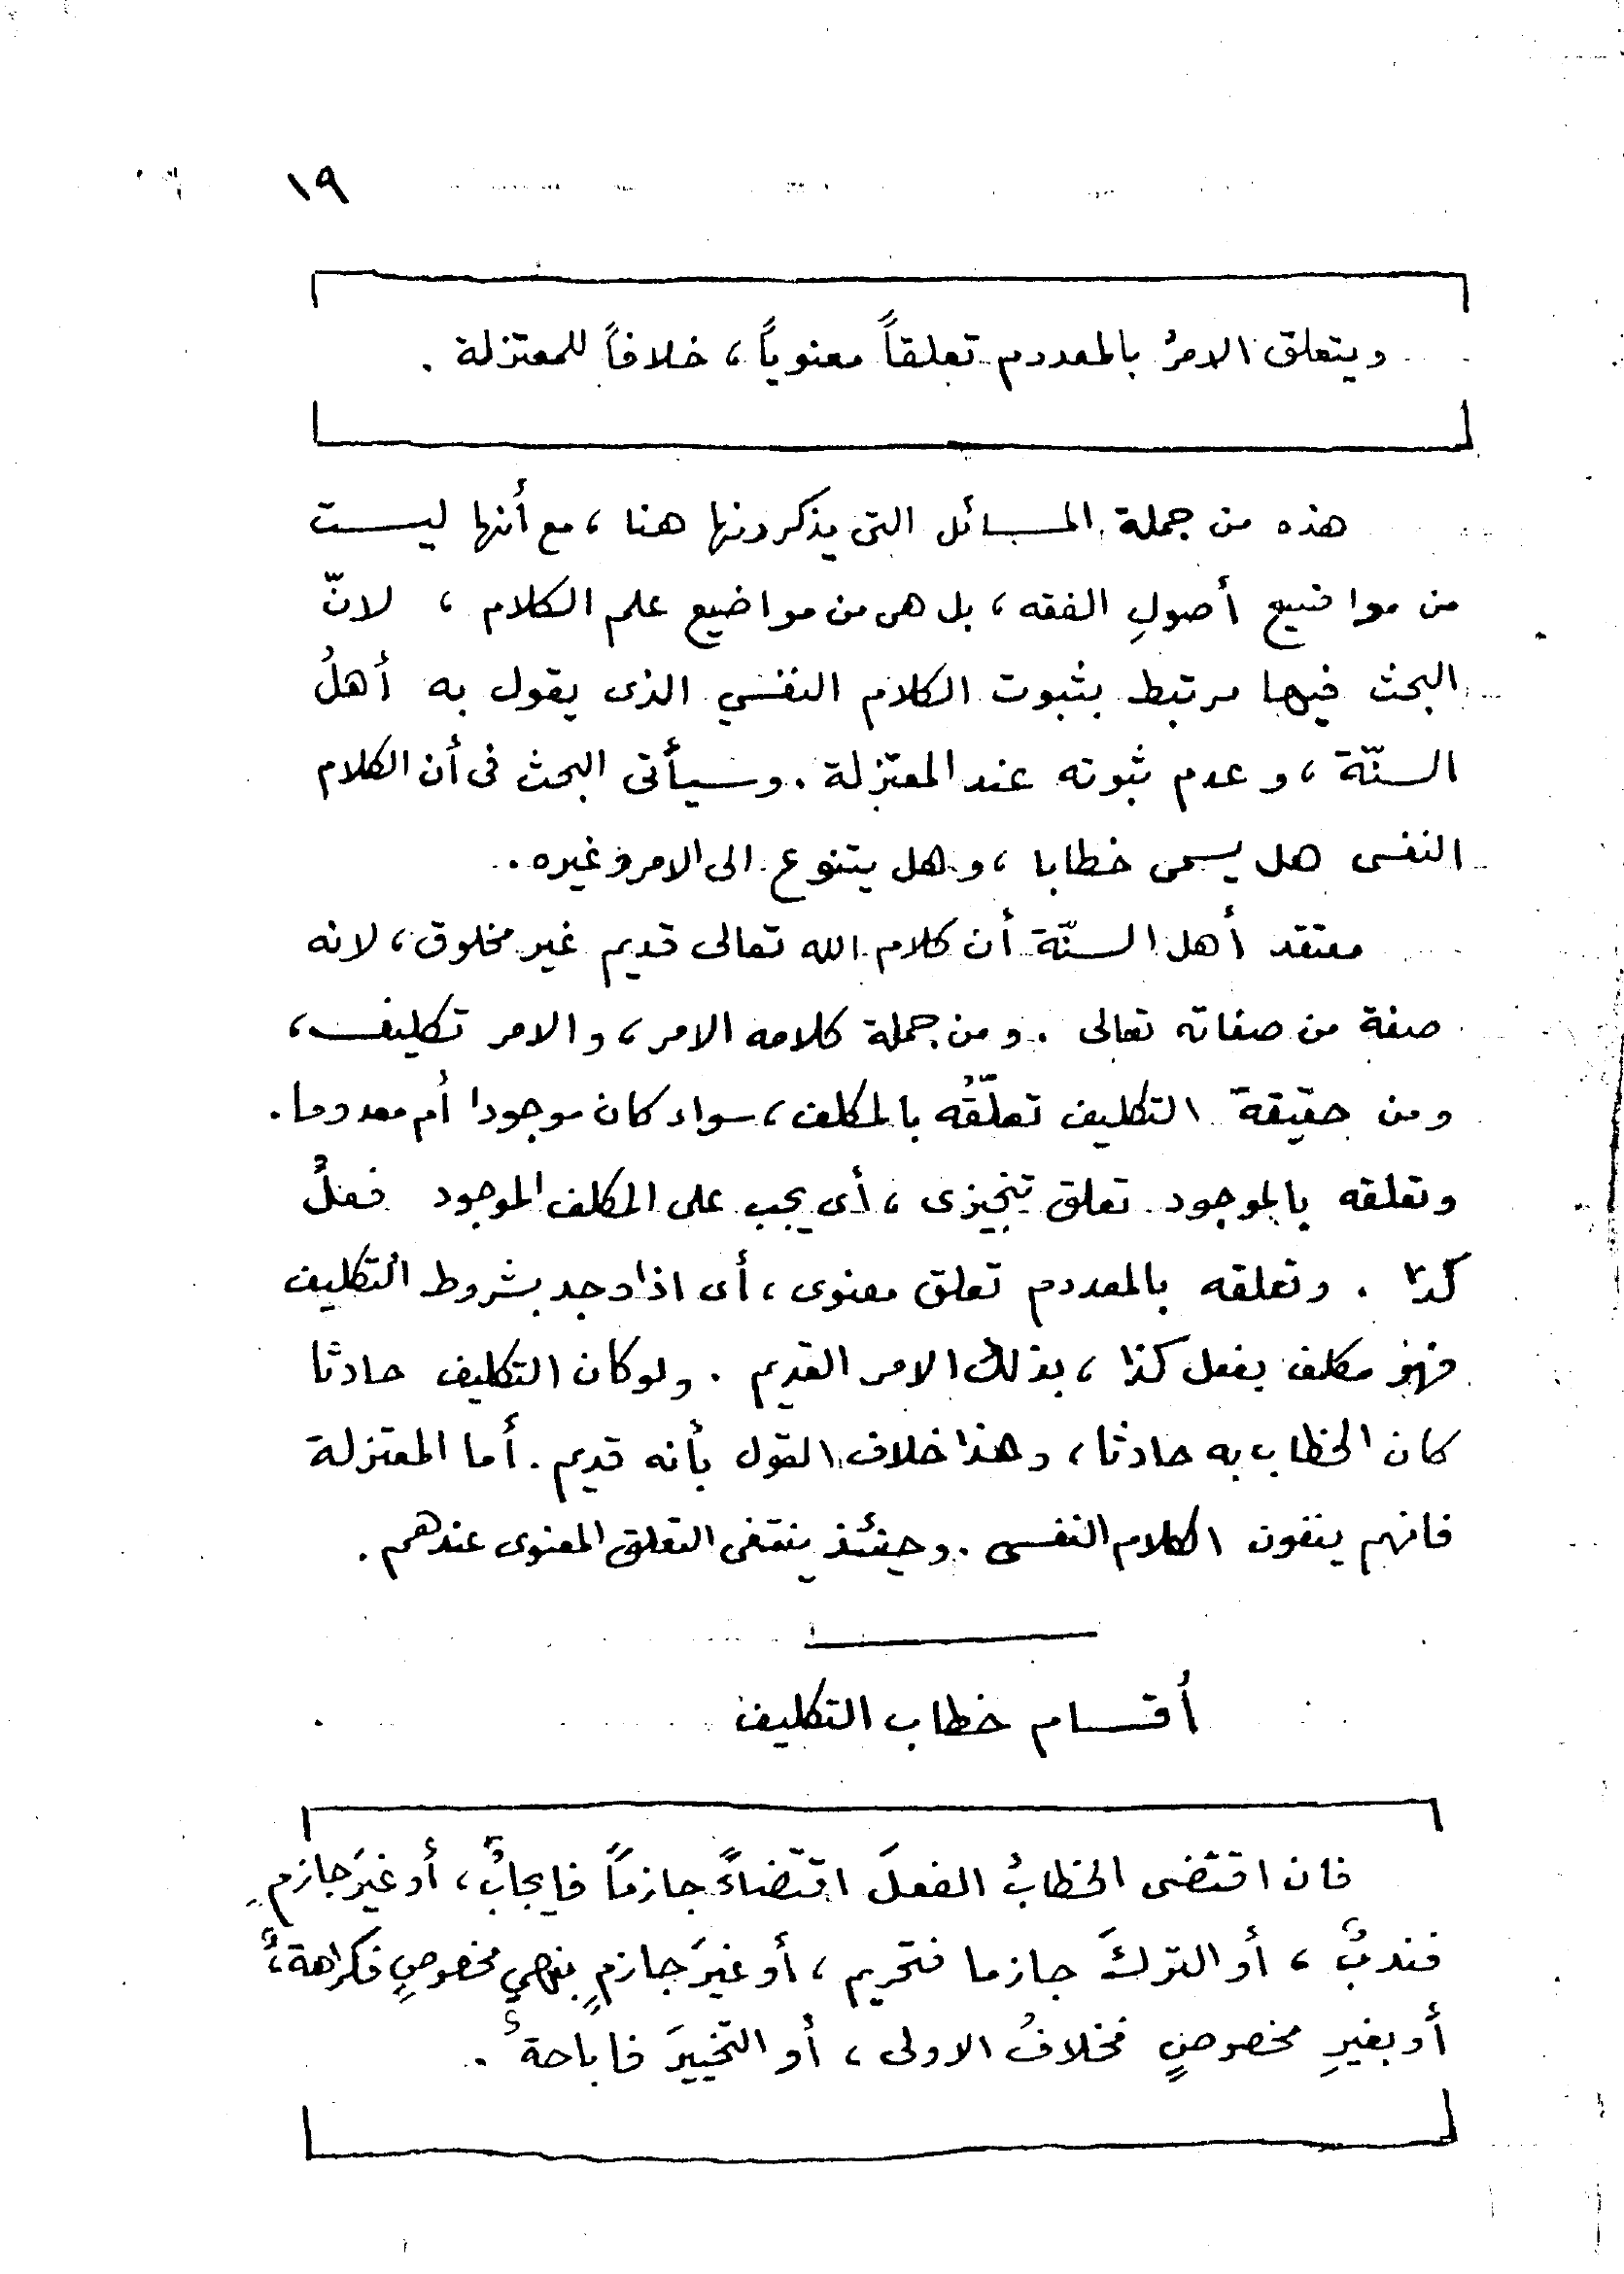 ١٩
ويتعلق الامرُ بالمعدوم تعلقاً معنوياً، خلافاً للمعتزلة .
هذه من جملة المسائل التى يذكرونها هنا، مع أنها ليست
من مواضيع أصولِ الفقه، بل هى من مواضيع علم الكلام، لانّ
البحث فيها مرتبط بثبوت الكلام النفسي الذى يقول به أهلُ
السنّة، وعدم ثبوته عند المعتزلة . وسيأتى البحث فى أن الكلام
النفسى هل يسمى خطابا، وهل يتنوع الى الامر وغيره .
معتقد أهل السنّة أن كلام الله تعالى قديم غير مخلوق، لانه
صفة من صفاته تعالى . ومن جملة كلامه الامر، والامر تكليف،
ومن حقيقة التكليف تعلّقُه بالمكلف، سواء كان موجودا أم معدوما .
وتعلقه بالموجود تعلق تنجيزى، أى يجب على المكلف الموجود فعلُ
كذا . وتعلقه بالمعدوم تعلق معنوى، أى اذا وجد بشروط التكليف
فهو مكلف بفعل كذا، بذلك الامر القديم . ولو كان التكليف حادثا
كان الخطاب به حادثا، وهذا خلاف القول بأنه قديم . أما المعتزلة
فانهم ينفون الكلام النفسى . وحينئذ ينتفى التعلق المعنوى عندهم .
أقسام خطاب التكليف
فان اقتضى الخطابُ الفعلَ اقتضاءً جازماً فايجابٌ، أو غيرَ جازمٍ
فندبٌ، أو التركَ جازما فتحريم، أو غيرَ جازمٍ بنهيٍ مخصوصٍ فكراهةٌ،
أو بغيرِ مخصوصٍ فخلافُ الاولى، أو التخييرَ فاباحةٌ .